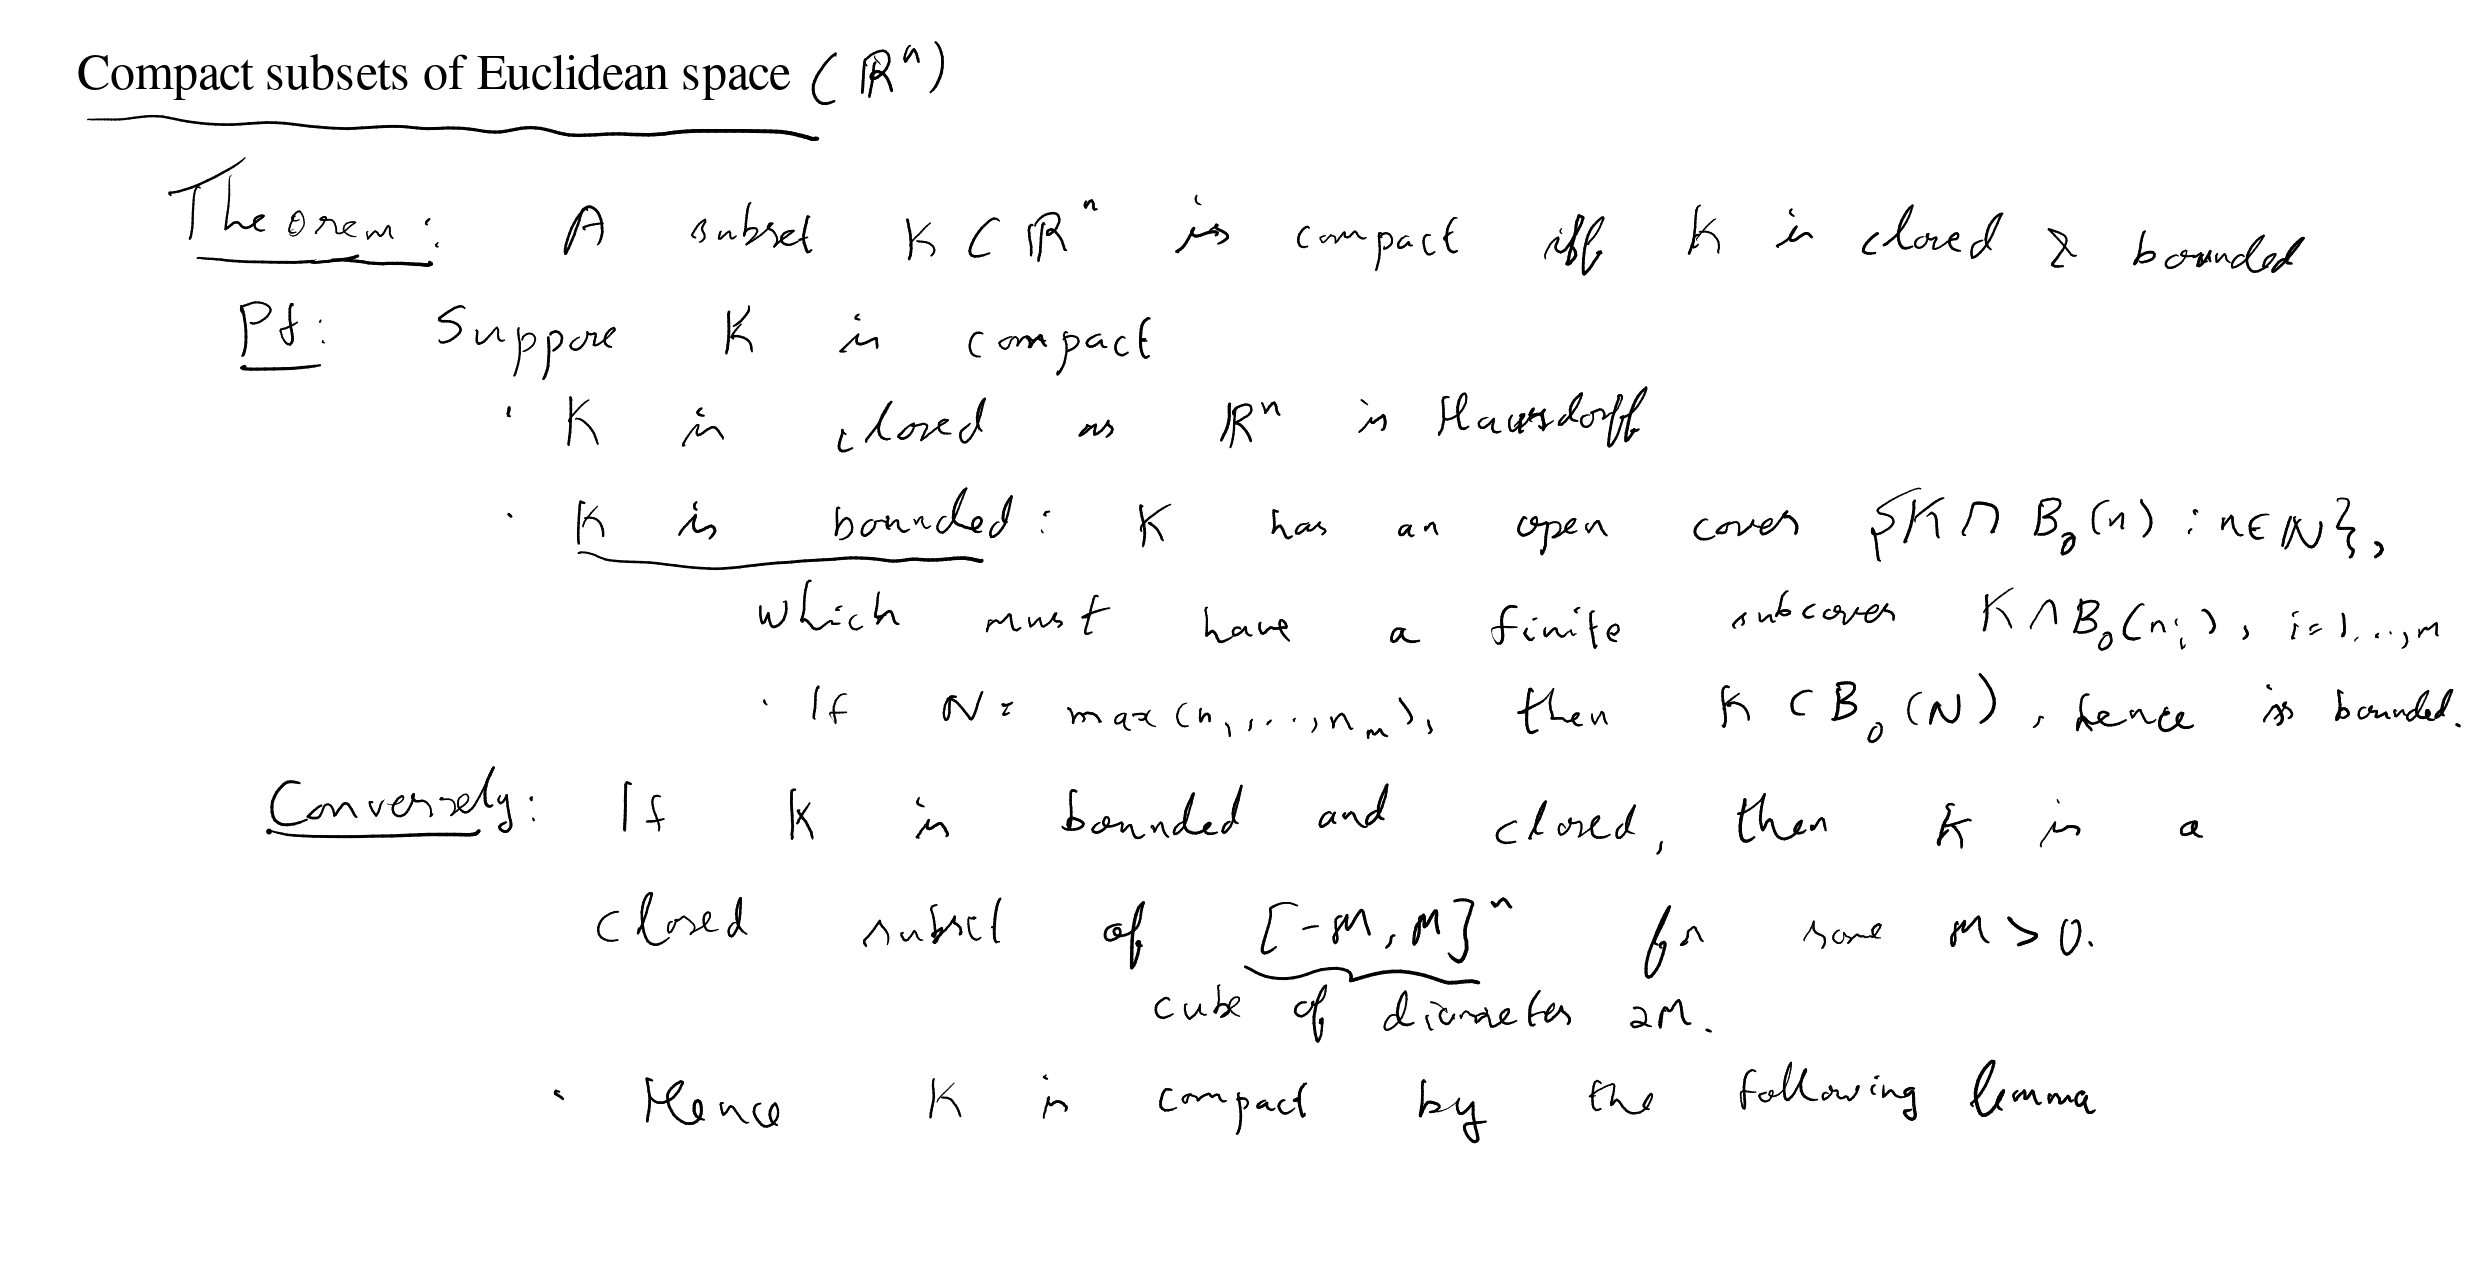 Compact subsets of Euclidean space (ℝⁿ)
Theorem: A subset K ⊂ ℝⁿ is compact iff K is closed & bounded
Pf: Suppose K is compact
· K is closed as ℝⁿ is Hausdorff
· K is bounded: K has an open cover {K ∩ B₀(n) : n ∈ ℕ},
which must have a finite subcover K ∩ B₀(nᵢ), i=1,..,m
· If N = max(n₁,...,nₘ), then K ⊂ B₀(N), hence is bounded.
Conversely: If K is bounded and closed, then K is a
closed subset of [-M, M]ⁿ for some M > 0.
cube of diameter 2M.
· Hence K is compact by the following lemma